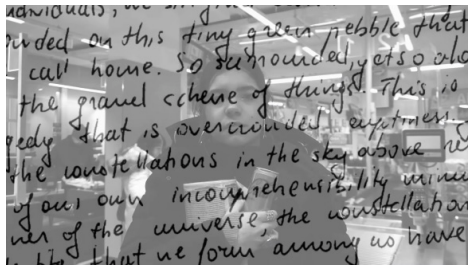 individuals, we
on this tiny green pebble that
call home. So surrounded, yet so
the grand scheme of things. This is
that is overcrouded emptiness.
the constellations in the sky above
of our own incomprehensibility
of the universe, the constellation
that we form among us have